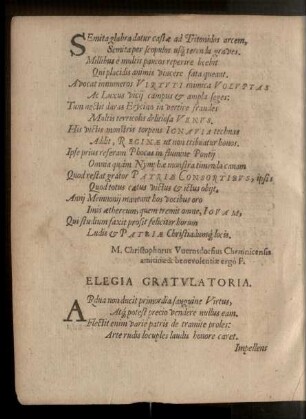 SEmita glabra datur castæ ad Tritonidos arcem,
Semita per scopulos usq; terenda graves.
Millibus è multis paucos reperire licebit
Qui placidis animis vincere fata queant.
Avocat innumeros VIRTUTI inimica VOLUPTAS
At Luxus vitij campus & ampla seges:
Tum noctis durat Erycian in vertice fraudes
Multis terricolis deliciosa VENUS.
His victis monstris torpens IGNAVIA technas
Addit, REGINÆ ut non tribuatur honos.
Ipse prius referam Phocas in flumine Ponti
Omnia quàm Nymphæ monstra timenda canam
Quid restat grator PATRIÆ CONSORTIBUS, ipse
Quod totus cætus victus & ictus obijt.
Annj Memnonij moveant hos vocibus oro
Imò æthereum quem tremit omne, IOVAM,
Qui studium faxit prosit feliciter horum
Ludis & PATRIÆ Christiadumq; locis.
M. Christophorus Vuttersdorfius Chemnicensis
amicitiæ & benevolentiæ ergò F.
ELEGIA GRATVLATORIA.
ARdua non ducit primordia sanguine Virtus,
Atq; potest precio vendere nullus eam.
Flectit enim variè patris de tramite proles:
Arte rudis locuples laudis honore caret.
Impellens